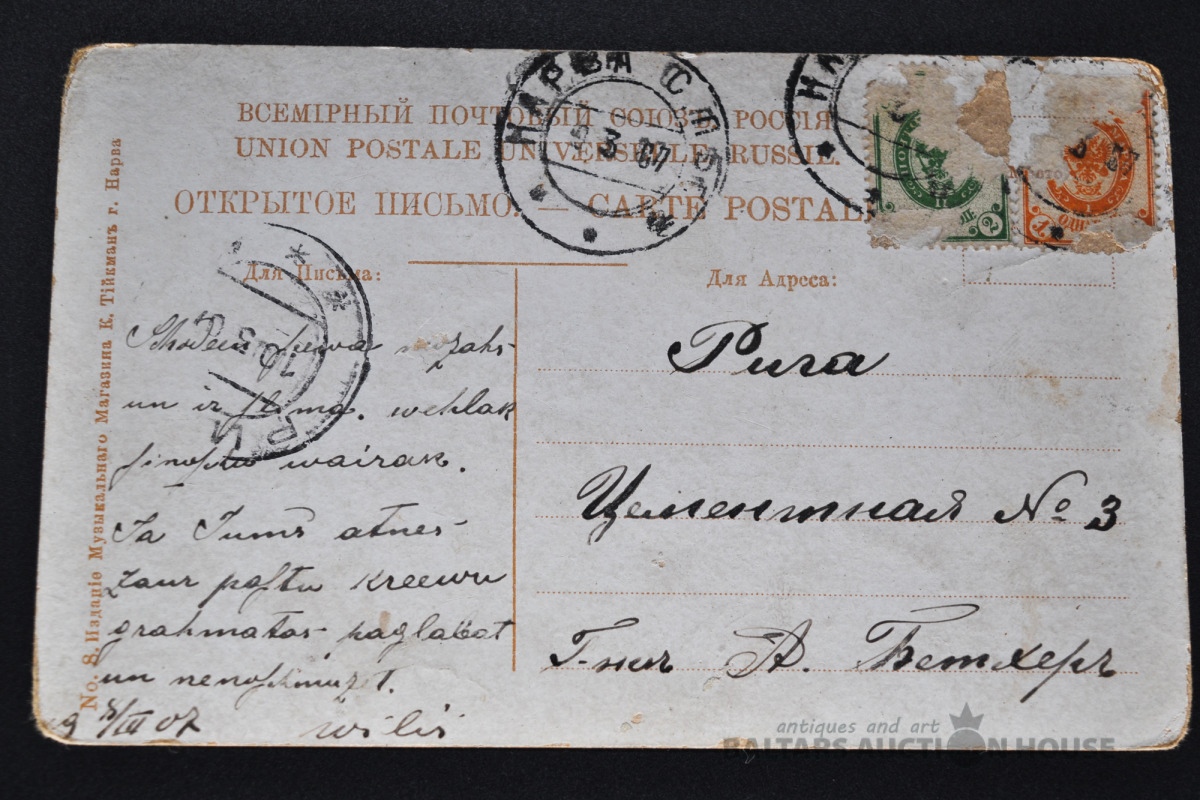 ВСЕМІРНЫЙ ПОЧТОВЫЙ СОЮЗЪ. РОССІЯ
UNION POSTALE UNIVERSELLE. RUSSIE.
ОТКРЫТОЕ ПИСЬМО. — CARTE POSTALE
НАРВА
3 07
Мѣсто
2
1
Для Письма:
Для Адреса:
No. 8. Изданіе Музыкальнаго Магазина К. Тійкманъ г. Нарва
Schodeen
un ir wehlak
wairak.
Ja Jums atnes
zaur pastu kreewu
grahmatas paglabat
un
8/III 07 Wilis
Рига
Цементная № 3
А. Бетхеръ
antiques and art
BALTARS AUCTION HOUSE